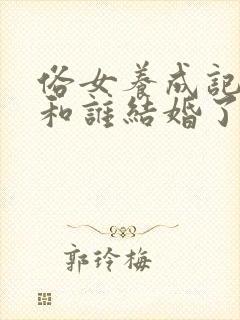 俗女養成記
和誰結婚了
郭玲梅